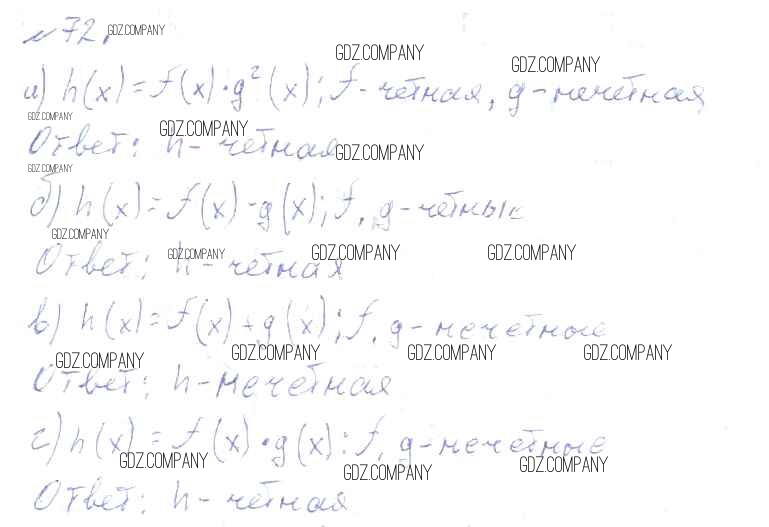 №72.
GDZ.COMPANY
GDZ.COMPANY
GDZ.COMPANY
а) h(x) = f(x)·g²(x); f - чётная, g - нечётная
GDZ.COMPANY
GDZ.COMPANY
Ответ: h - чётная
GDZ.COMPANY
GDZ.COMPANY
б) h(x) = f(x) - g(x); f, g - чётные
GDZ.COMPANY
Ответ: h - чётная
GDZ.COMPANY
GDZ.COMPANY
GDZ.COMPANY
в) h(x) = f(x) + g(x); f, g - нечётные
GDZ.COMPANY
GDZ.COMPANY
GDZ.COMPANY
GDZ.COMPANY
Ответ: h - нечётная
г) h(x) = f(x)·g(x): f, g - нечётные
GDZ.COMPANY
GDZ.COMPANY
GDZ.COMPANY
Ответ: h - чётная